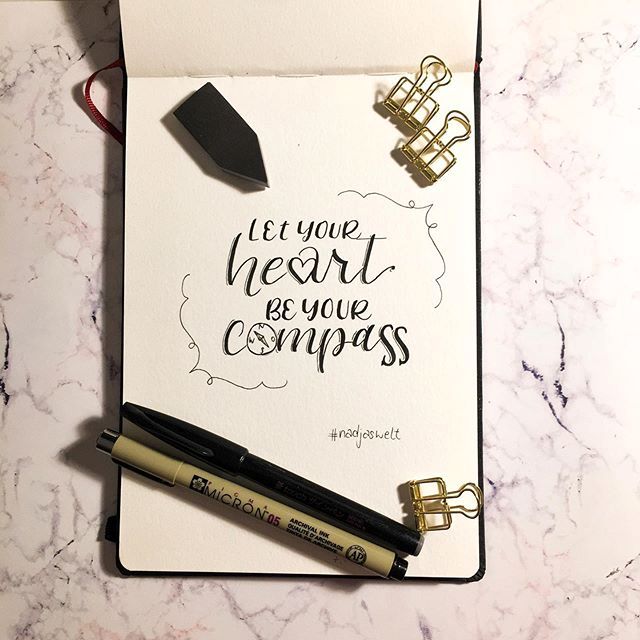 LET YOUR
heart
BE YOUR
compass
#nadjaswelt
PIGMA
MICRON 05
ARCHIVAL INK
QUALITÉ D'ARCHIVAGE
AP